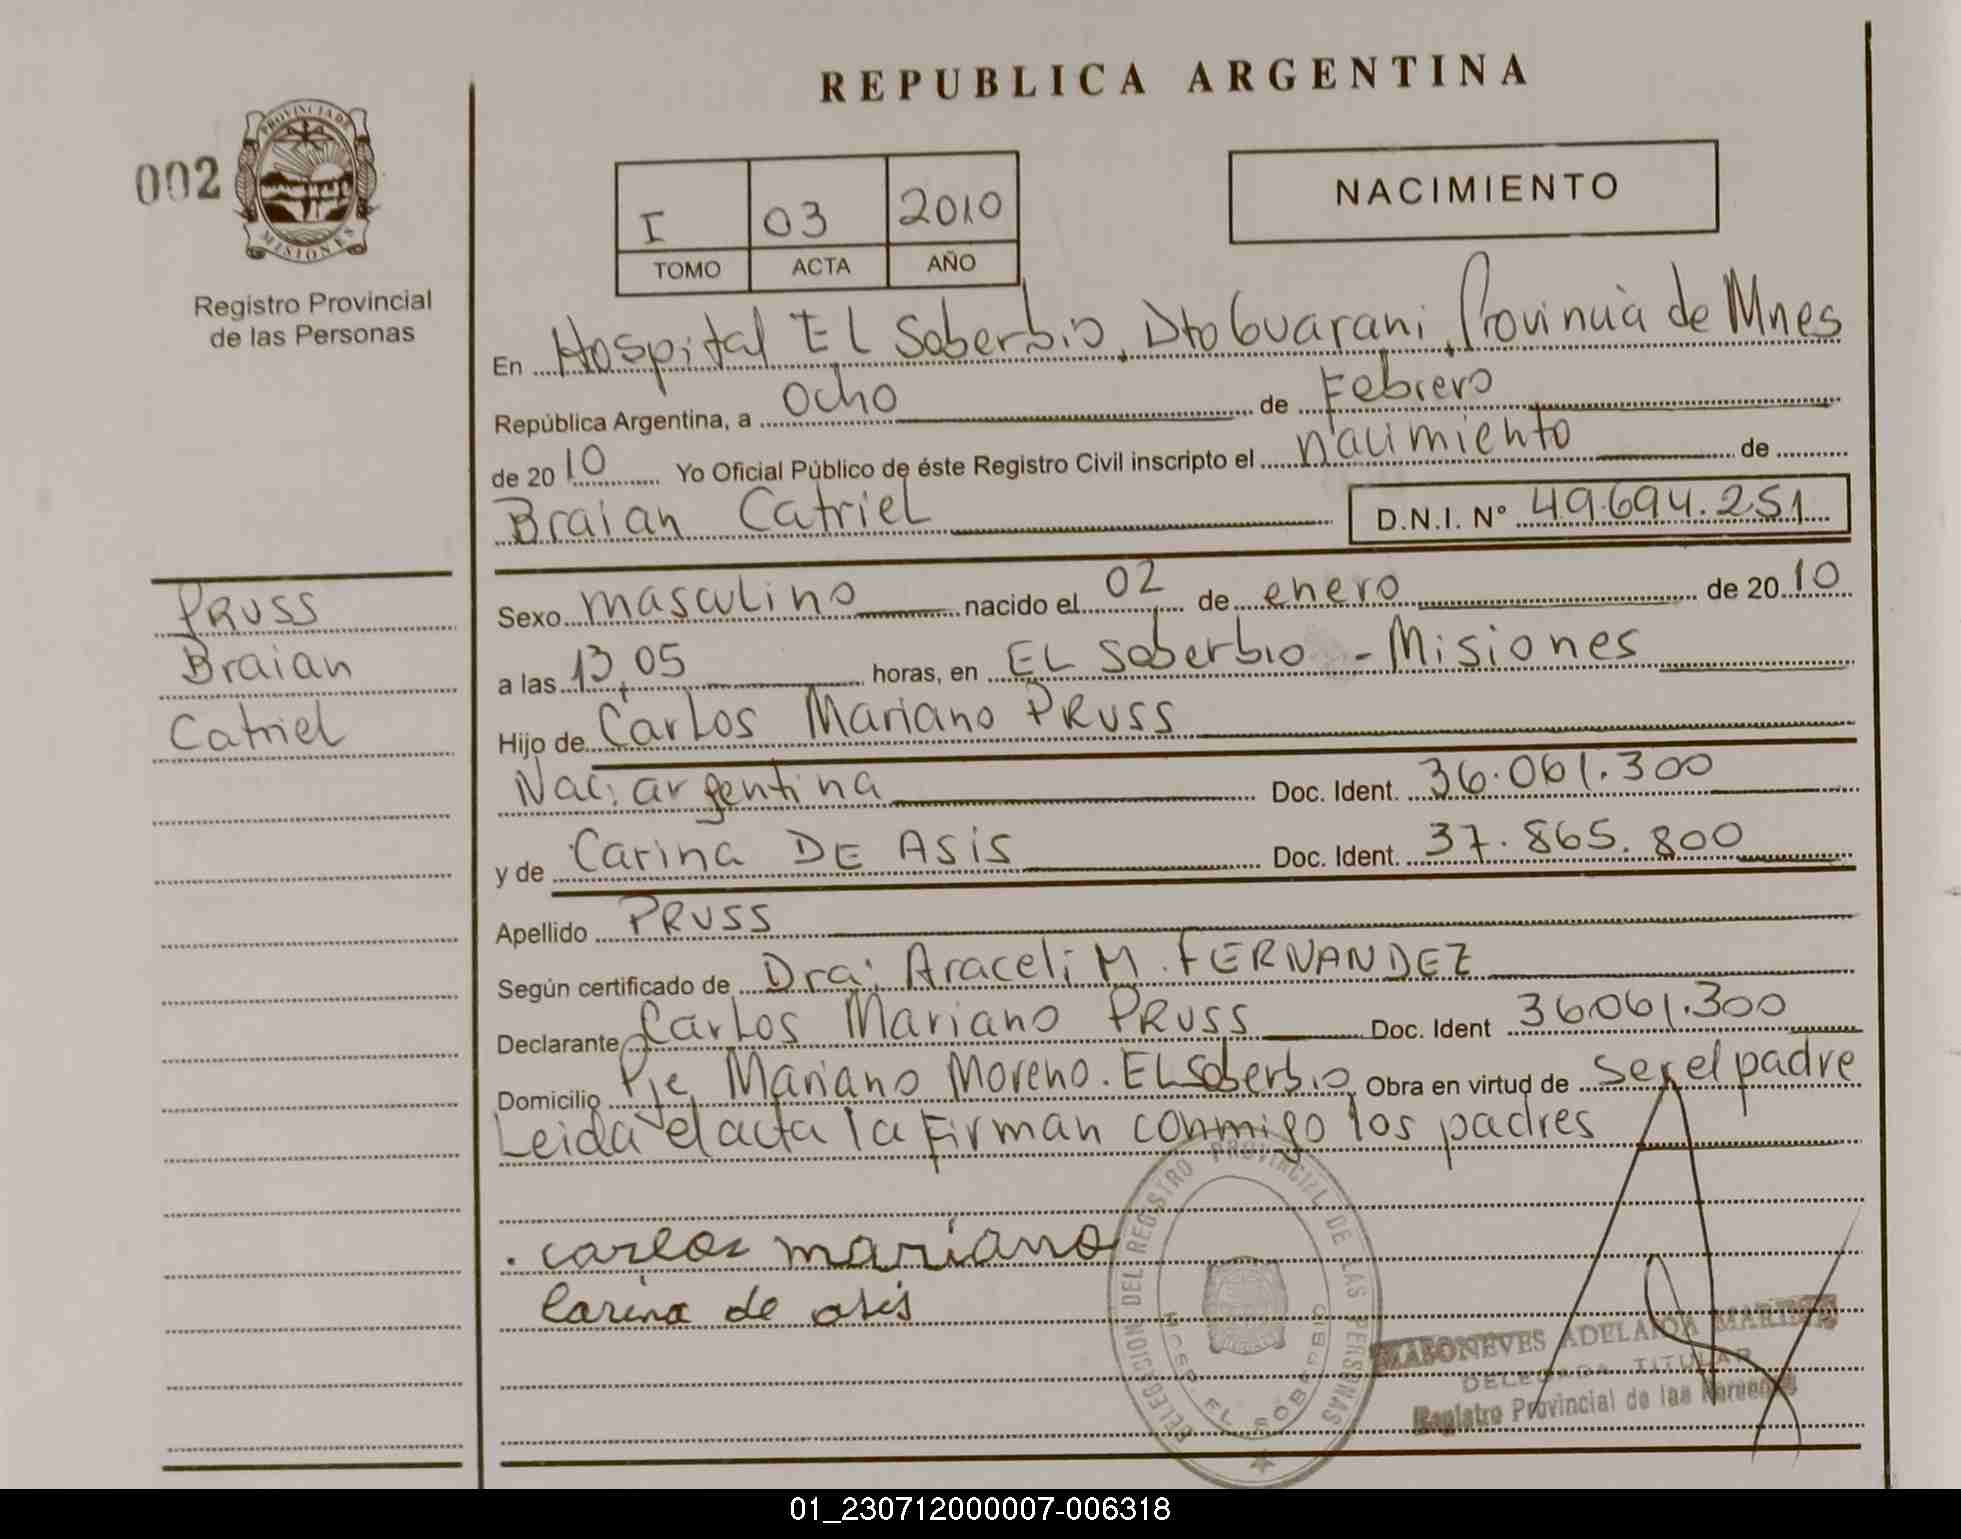 REPUBLICA ARGENTINA
002
PROVINCIA DE
MISIONES
Registro Provincial
de las Personas
I 03 2010
TOMO ACTA AÑO
NACIMIENTO
En Hospital EL Soberbio, Dto Guarani, Provincia de Mnes
República Argentina, a ocho de Febrero
de 2010 Yo Oficial Público de éste Registro Civil inscripto el nacimiento de
Braian Catriel D.N.I. N° 49.694.251
PRUSS
Braian
Catriel
Sexo masculino nacido el 02 de enero de 2010
a las 13,05 horas, en EL Soberbio - Misiones
Hijo de Carlos Mariano PRUSS
Nac: argentina Doc. Ident. 36.061.300
y de Carina DE ASIS Doc. Ident. 37.865.800
Apellido PRUSS
Según certificado de Dra: Araceli M. FERNANDEZ
Declarante Carlos Mariano PRUSS Doc. Ident 36061.300
Domicilio Pje Mariano Moreno. EL Soberbio Obra en virtud de ser el padre
Leida el acta la Firman conmigo los padres
carlos mariano
Carina de asis
DELEGACION DEL REGISTRO PROVINCIAL DE LAS PERSONAS
EL SOBERBIO
ADELAIDA
DELEGADA TITULAR
Registro Provincial de las Personas
01_230712000007-006318